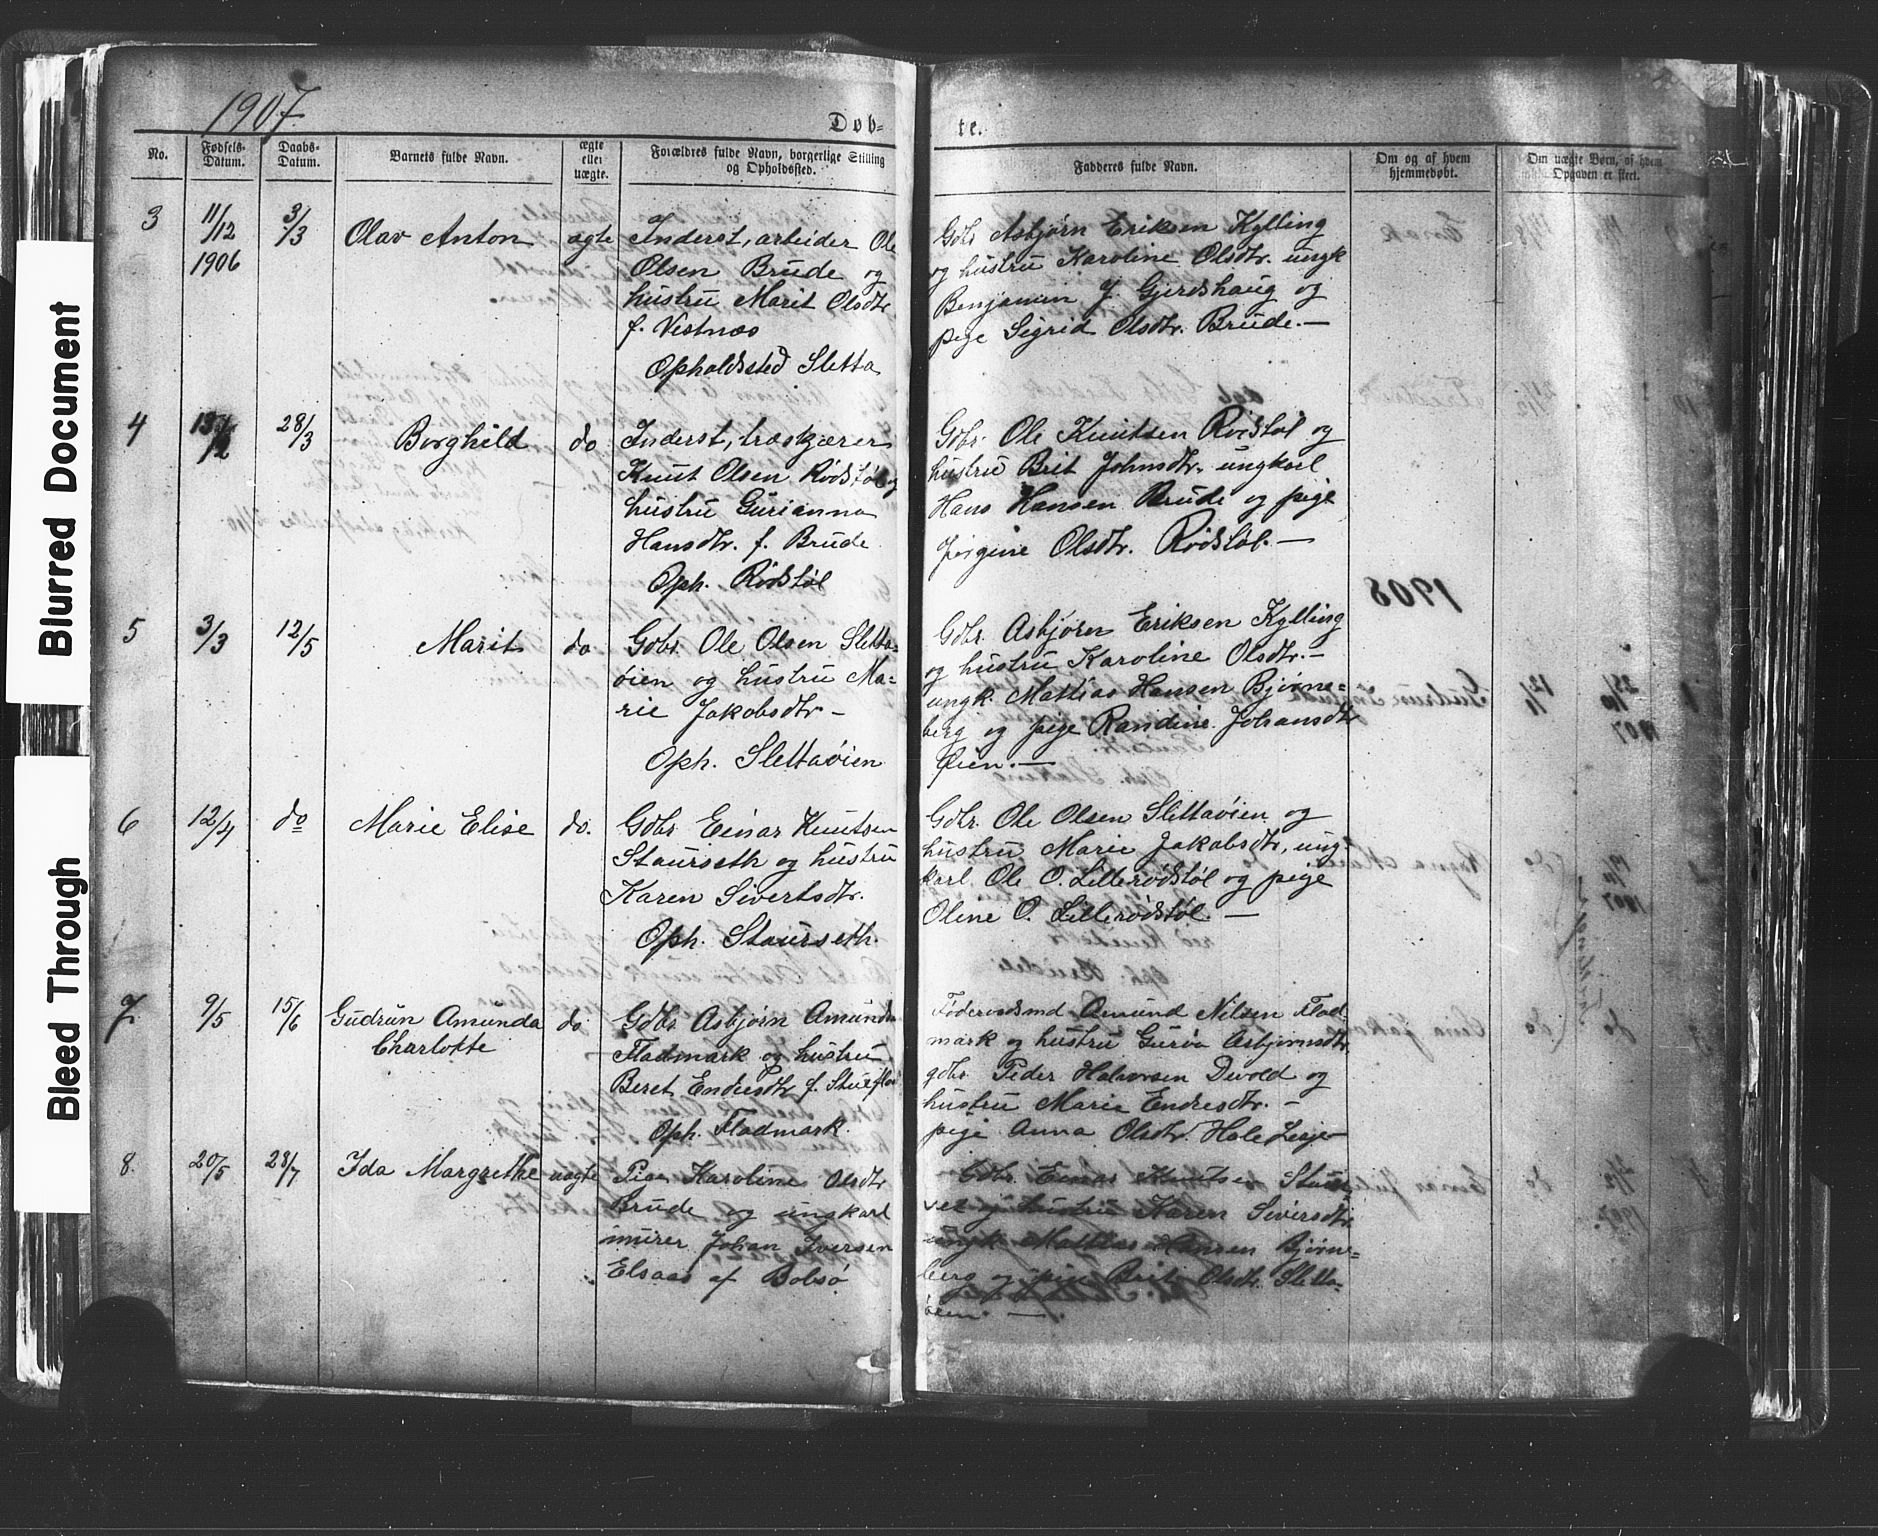 Blurred Document
Bleed Through
1907
Døb-
te.
No.
Fødsels-
Datum.
Daabs-
Datum.
Barnets fulde Navn.
ægte
eller
uægte.
Forældres fulde Navn, borgerlige Stilling
og Opholdssted.
Fadderes fulde Navn.
Om og af hvem
hjemmedøbt.
Om uægte Børn, af hvem
Opgaven er skeet.
3
11/12
1906
3/3
Olav Anton
ægte
Inderst, arbeider Ole
Olsen Brude og
hustru Marit Olsdtr
f. Vestnæs
Opholdssted Sletta
Gbr Asbjørn Eriksen Kylling
og hustru Karoline Olsdtr. ungk
Benjamin J. Gjerdshaug og
pige Sigrid Olsdtr. Brude.—
4
28/3
Borghild
do
Inderst, træskjærer
Knut Olsen Rødstøl og
hustru Gurianna
Hansdtr. f. Brude
Oph. Rødstøl
Gbr. Ole Knutsen Rødstøl og
hustru Brit Johnsdtr. ungkarl
Hans Hansen Brude og pige
Jørgine Olsdtr. Rødstøl.—
5
3/3
12/5
Marit
do
Gbr. Ole Olsen Sletta-
øien og hustru Ma-
rie Jakobsdtr—
Oph. Slettaøien
Gbr. Asbjørn Eriksen Kylling
og hustru Karoline Olsdtr.—
ungk. Mattias Hansen Bjørne-
berg og pige Randine Johansdtr
Øien.—
6
12/4
do
Marie Elise
do.
Gbr. Einar Knutsen
Staurseth og hustru
Karen Sivertsdtr.
Oph. Staurseth.
Gbr. Ole Olsen Slettaøien og
hustru Marie Jakobsdtr, ung-
karl Ole O. Lillerødstøl og pige
Oline O. Lillerødstøl.—
7
9/5
15/6
Gudrun Amunda
Charlotte
do
Gbr. Asbjørn Amundsen
Fladmark og hustru
Beret Endresdtr f. Stueflot
Oph. Fladmark.
Føderaadsmd Amund Nilsen Flad-
mark og hustru Guróa Asbjørnsdtr,
gbr. Peder Halvorsen Devold og
hustru Marie Endresdtr.—
pige Anna Olsdtr. Hole Lesje
8.
20/5
28/7
Ida Margrethe
uægte
Pige Karoline Olsdtr
Brude og ungkarl
murer Johan Iversen
Elsaas af Bolsø
Gbr. Einar Knutsen Staur-
set og hustru Karen Siversdtr.
ungk Mattias Hansen Bjørne-
berg og pige Brit Olsdtr. Sletta-
øien.—
1908